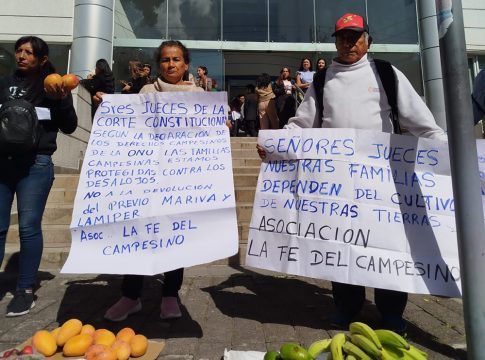 Sres JUECES de la
CORTE CONSTITUCIONAL
SEGUN LA DECLARACIÓN DE
LOS DERECHOS CAMPESINOS
DE LA ONU LAS FAMILIAS
CAMPESINAS ESTAMOS
PROTEGIDAS CONTRA LOS
DESALOJOS
NO A LA DEVOLUCION
del PREVIO MARIVA Y
LAMIPER
Asoc.. LA FE DEL
CAMPESINO
SEÑORES JUECES
NUESTRAS FAMILIAS
DEPENDEN DEL CULTIVO
DE NUESTRAS TIERRAS
ASOCIACION
LA FE DEL CAMPESINO